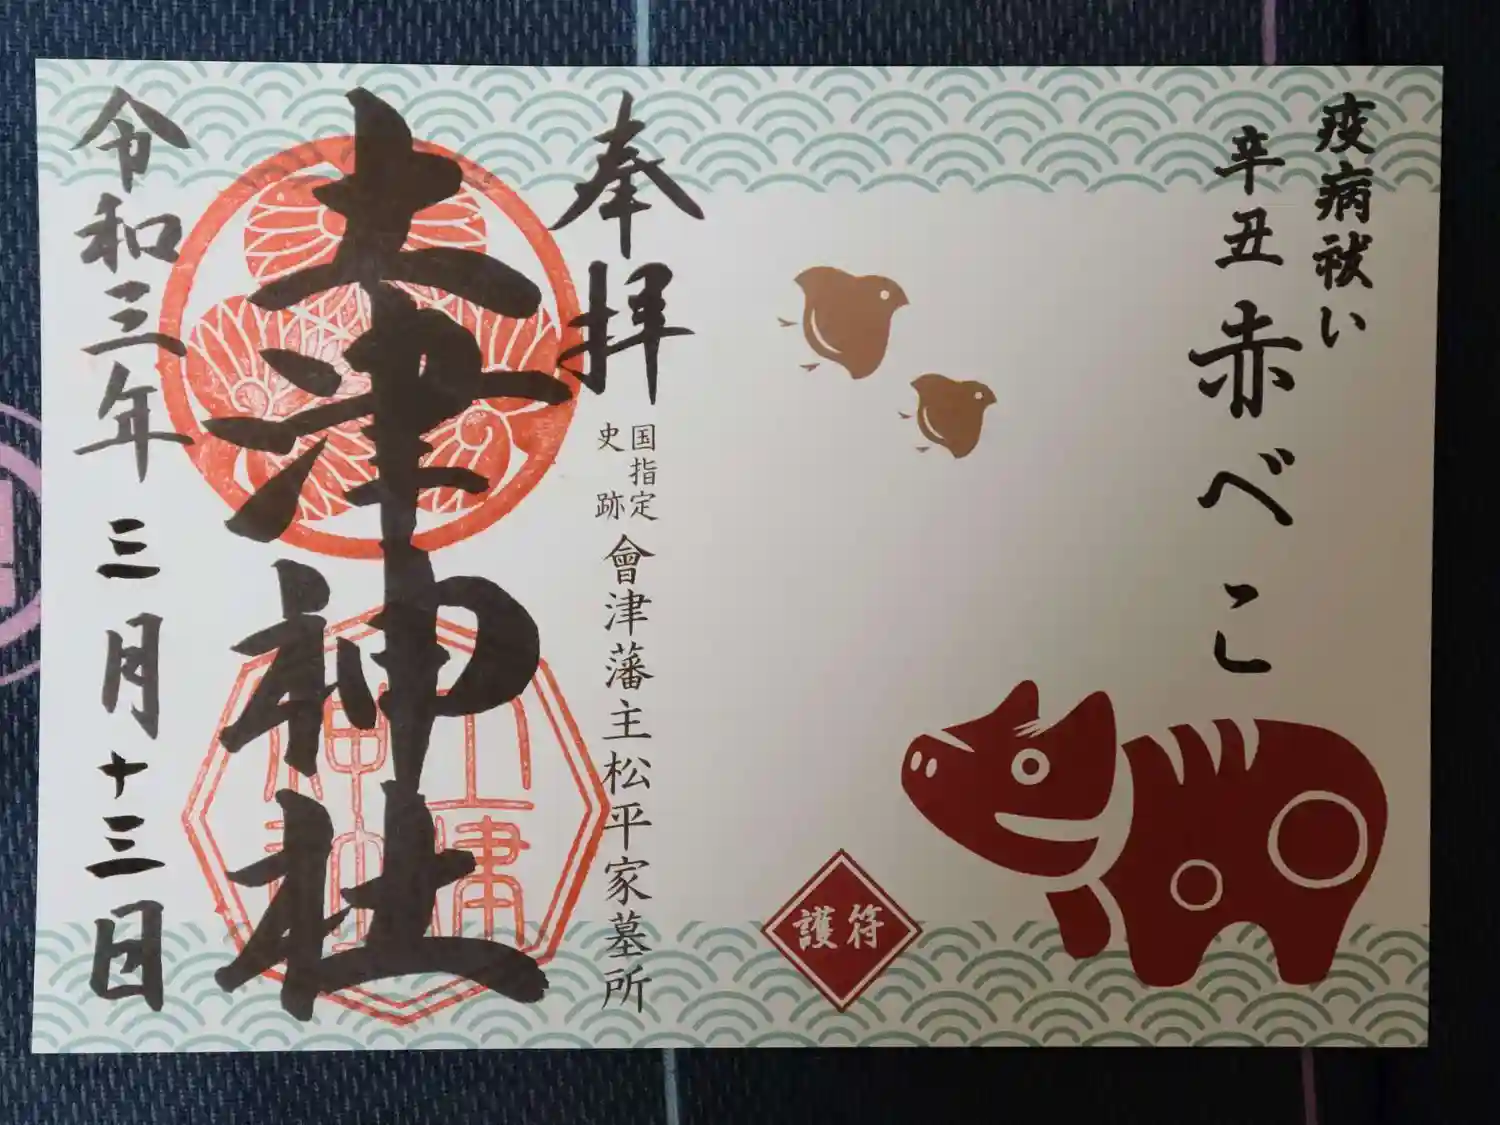 疫病祓い
辛丑 赤べこ
護符
奉拝
国指定
史跡
會津藩主松平家墓所
土津神社
令和三年 三月 十三日